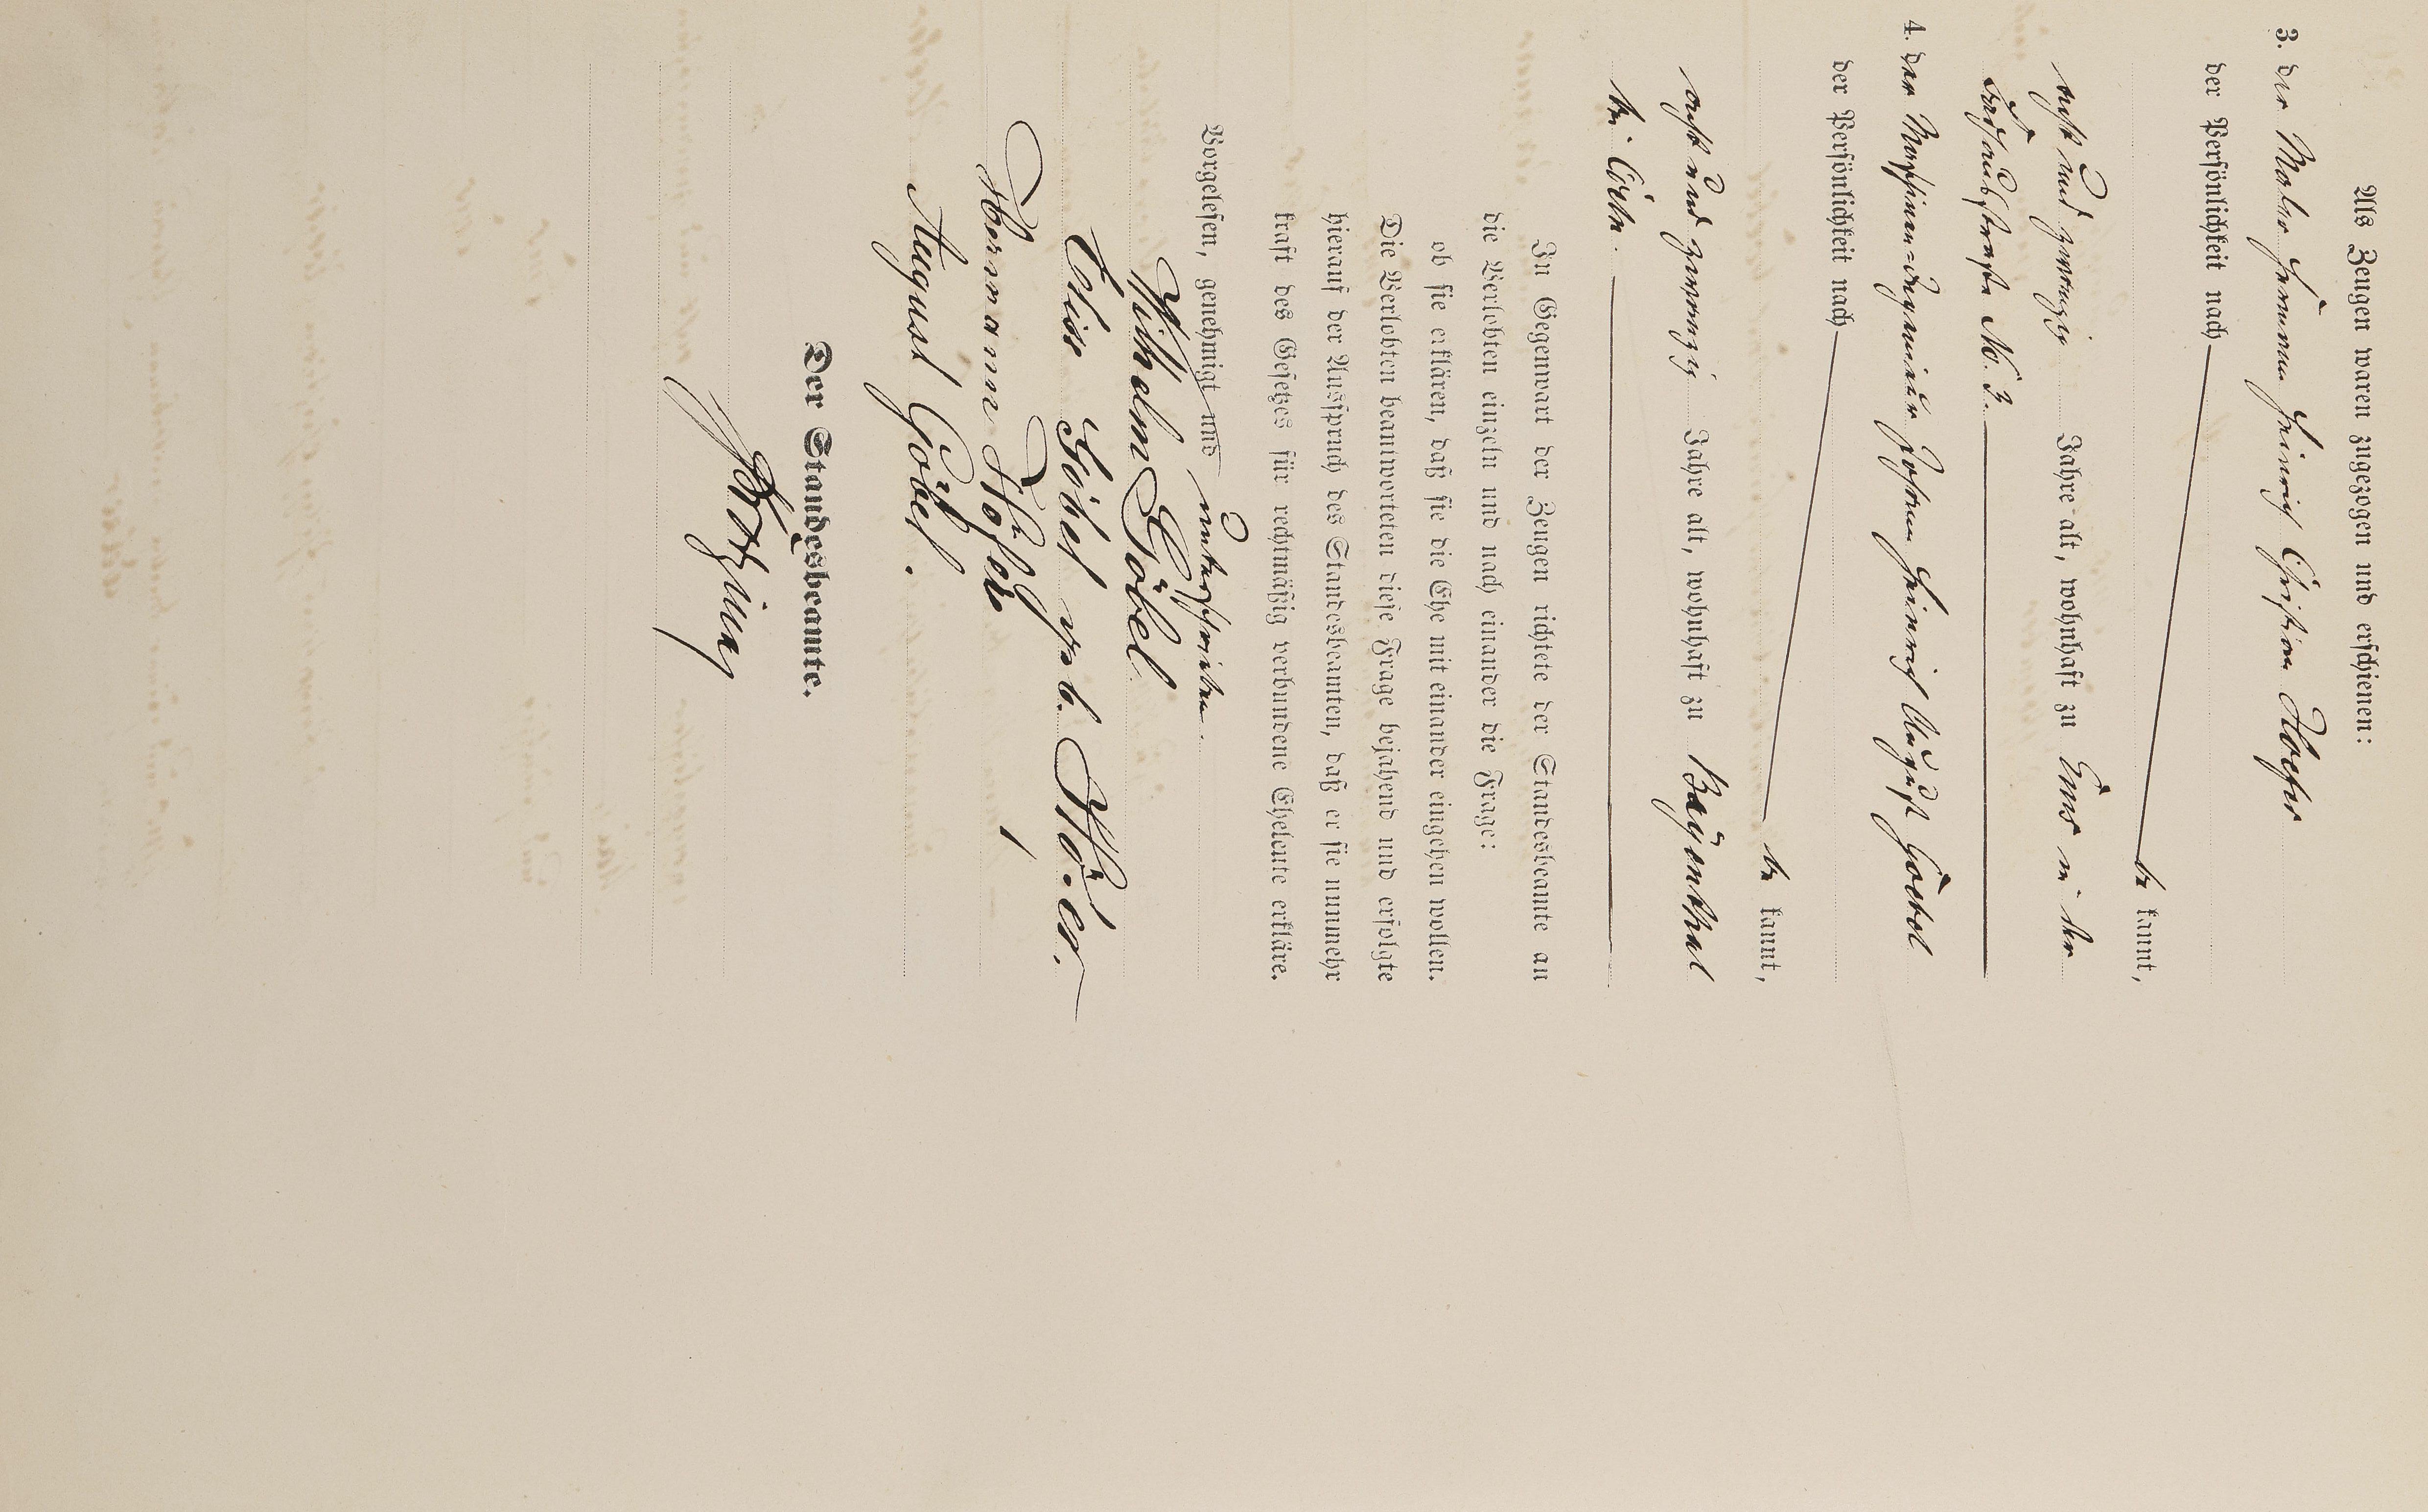 Als Zeugen waren zugezogen und erschienen:
3. der Maler Hermann Heinrich Christian Hoefer
der Persönlichkeit nach
be kannt,
acht und zwanzig Jahre alt, wohnhaft zu Ems in der
No. 3.
4. der Maschinen-Ingenieur Johann Heinrich August Goebel
der Persönlichkeit nach
be kannt,
acht und zwanzig Jahre alt, wohnhaft zu Bayenthal
bei Cöln.
In Gegenwart der Zeugen richtete der Standesbeamte an
die Verlobten einzeln und nach einander die Frage:
ob sie erklären, daß sie die Ehe mit einander eingehen wollen.
Die Verlobten beantworteten diese Frage bejahend und erfolgte
hierauf der Ausspruch des Standesbeamten, daß er sie nunmehr
kraft des Gesetzes für rechtmäßig verbundene Eheleute erkläre.
Vorgelesen, genehmigt und unterschrieben.
Wilhelm Göbel
Elise Göbel geb. Höfer.
Hermann Höfer
August Göbel.
Der Standesbeamte.